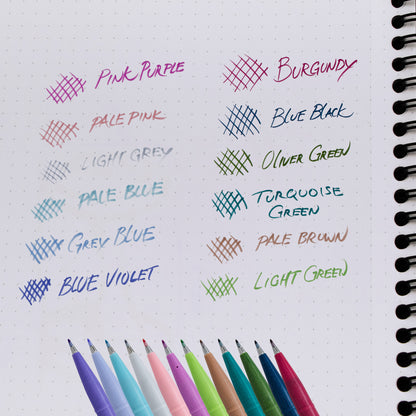 PINK PURPLE
PALE PINK
LIGHT GREY
PALE BLUE
GREY BLUE
BLUE VIOLET
BURGUNDY
BLUE BLACK
OLIVER GREEN
TURQUOISE
GREEN
PALE BROWN
LIGHT GREEN